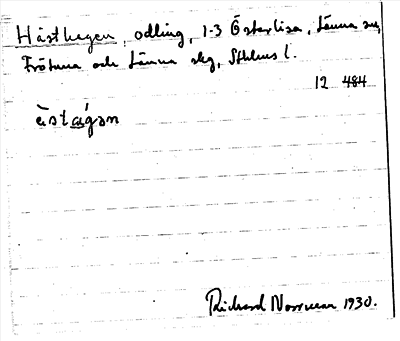 Hästhagen, odling, 1-3 Österlisa, Länna sn,
Frötuna och Länna slg, Sthlms l.
12 484
ästagən
Richard Norrman 1930.